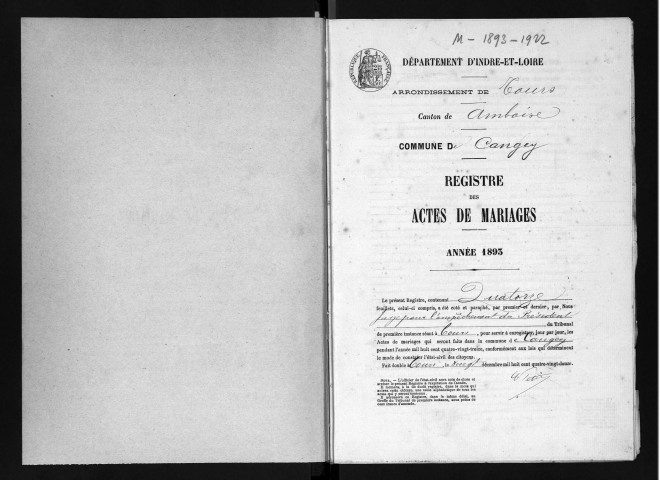 M - 1893 - 1922
DÉPARTEMENT D'INDRE-ET-LOIRE
ARRONDISSEMENT DE Tours
Canton de Amboise
COMMUNE De Cangey
REGISTRE
DES
ACTES DE MARIAGES
ANNÉE 1893
Le présent Registre, contenant Quatorze
feuillets, celui-ci compris, a été coté et paraphé, par premier et dernier, par Nous
Juge pour l'empêchement du Président
du Tribunal
de première instance séant à Tours, pour servir à enregistrer, jour par jour, les
Actes de mariages qui seront faits dans la commune de Cangey
pendant l'année mil huit cent quatre-vingt-treize, conformément aux lois qui déterminent
le mode de constater l'état-civil des citoyens.
Fait double à Tours, le vingt décembre mil huit cent quatre-vingt-douze.
NOTA. — L'officier de l'état-civil aura soin de clore et
arrêter le présent Registre à l'expiration de l'année.